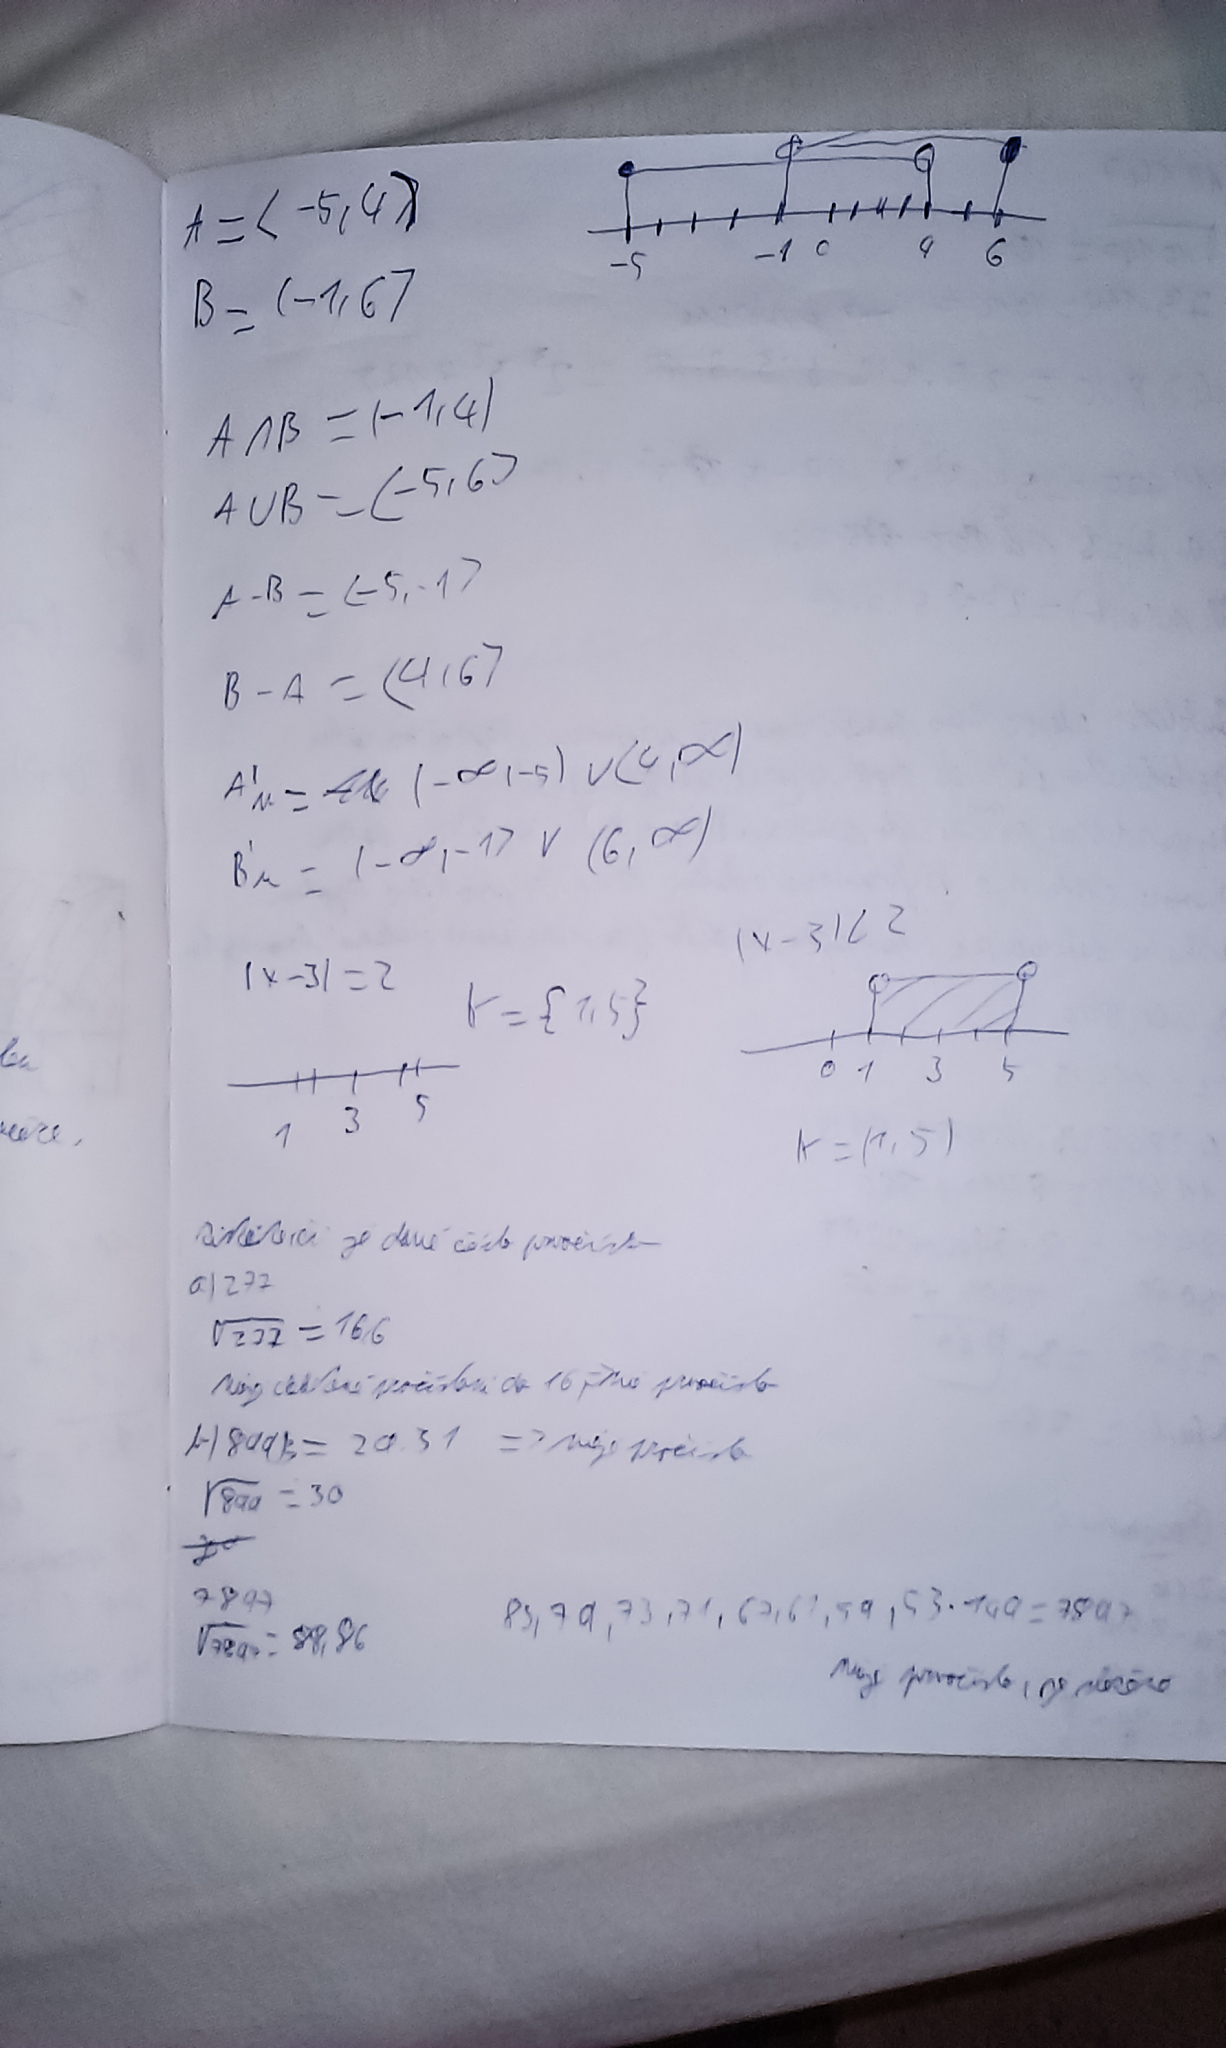 A = ⟨-5,4)
B = (-1,6⟩
-5 -1 0 4 6
A ∩ B = (-1,4)
A ∪ B = ⟨-5,6⟩
A - B = ⟨-5,-1⟩
B - A = (4,6⟩
A' = (-∞,-5) ∪ (4,∞)
B' = (-∞,-1⟩ ∪ (6,∞)
|x-3| = 2
K = {1,5}
1 3 5
|x-3| < 2
0 1 3 5
K = (1,5)
je dané číslo prvočíslo
a) 277
√277 = 16,6
do 16 prvočíslo
b) 899 = 29.31 => není prvočíslo
√899 = 30
7897
√7897 = 88,86
83, 79, 73, 71, 67, 61, 59, 53 · 149 = 7897
není prvočíslo, je složené